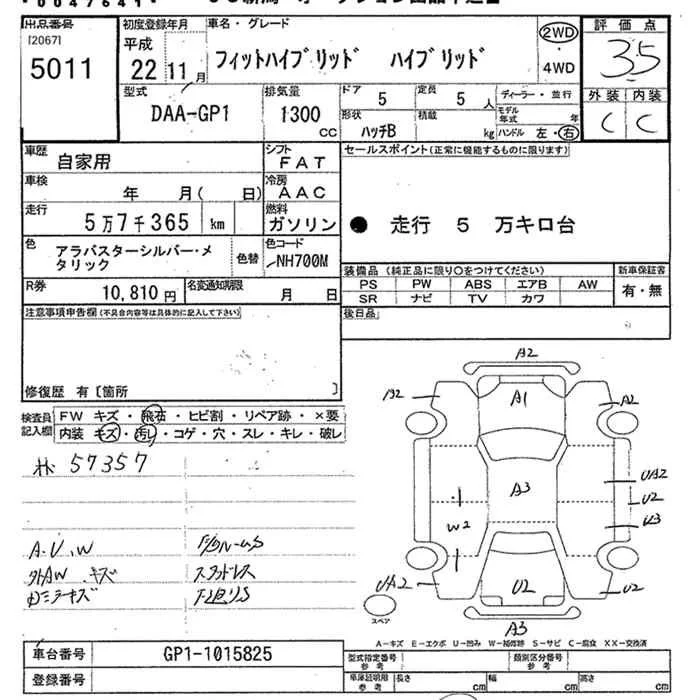 出品番号
[2067]
5011
初度登録年月
平成
22 11月
車名・グレード
フィットハイブリッド ハイブリッド
2WD
・
4WD
評価点
3.5
外装 内装
C C
型式
DAA-GP1
排気量
1300
cc
ドア
5
定員
5人
形状
ハッチB
積載
kg
ディーラー・並行
モデル年式
年
ハンドル 左・右
車歴
自家用
シフト
FAT
車検
年 月( 日)
冷房
AAC
走行
5万7千365 km
燃料
ガソリン
色
アラバスターシルバー・メタリック
色替
色コード
NH700M
R券
10,810円
名変通知期限
月 日
セールスポイント(正常に機能するものに限ります)
● 走行 5 万キロ台
装備品(純正品に限り○をつけてください)
PS PW ABS エアB AW
SR ナビ TV カワ
新車保証書
有・無
後日品
注意事項申告欄(不具合内容等は具体的に記入して下さい)
修復歴 有〔箇所 〕
検査員記入欄
FW キズ・飛石・ヒビ割・リペア跡・×要
内装 キズ・汚レ・コゲ・穴・スレ・キレ・破レ
57357
A.U.W
キズ
A2
A2
A1
A2
A3
UA2
U2
U3
W2
UA2
U2
U2
A3
スペア
A-キズ E-エクボ U-凹み W-補修跡 S-サビ C-腐食 XX-交換済
車台番号
GP1-1015825
登録番号
型式指定番号
参考
類別区分番号
参考
車庫証明用
参考
長さ
cm
幅
cm
高さ
cm